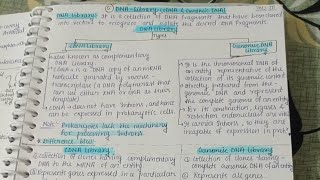 DNA-Library (cDNA & Genomic DNA)
DNA Library: It is a collection of DNA fragments that have been cloned
into vectors to recognize and the desired DNA fragments.
DNA Library
Types
cDNA Library
Genomic DNA Library
also known as complementary
DNA Library
cDNA is a DNA copy of an mRNA
molecule generated by reverse
transcriptase (a DNA polymerase that
can use either DNA or RNA as
cDNA does not have Introns, and hence
can be expressed in prokaryotic cells.
It is the chromosomal DNA of
an entity representative of the
collection of its genomic content
directly prepared from the
genomic DNA and represent
the complete genome of an entity
for its construction, ligases &
restriction endonucleases are
contains Introns, so they are
incapable of expression in prok
Note: Prokaryotes lack the machinery
for processing Introns.
Difference b/w:
cDNA Library
Genomic DNA Library
① collection of clones having complementary
DNA to the mRNA of an entity
② Represents genes expressed in a particular
① collection of clones having
complete genomic DNA of an entity
② Represents all genes